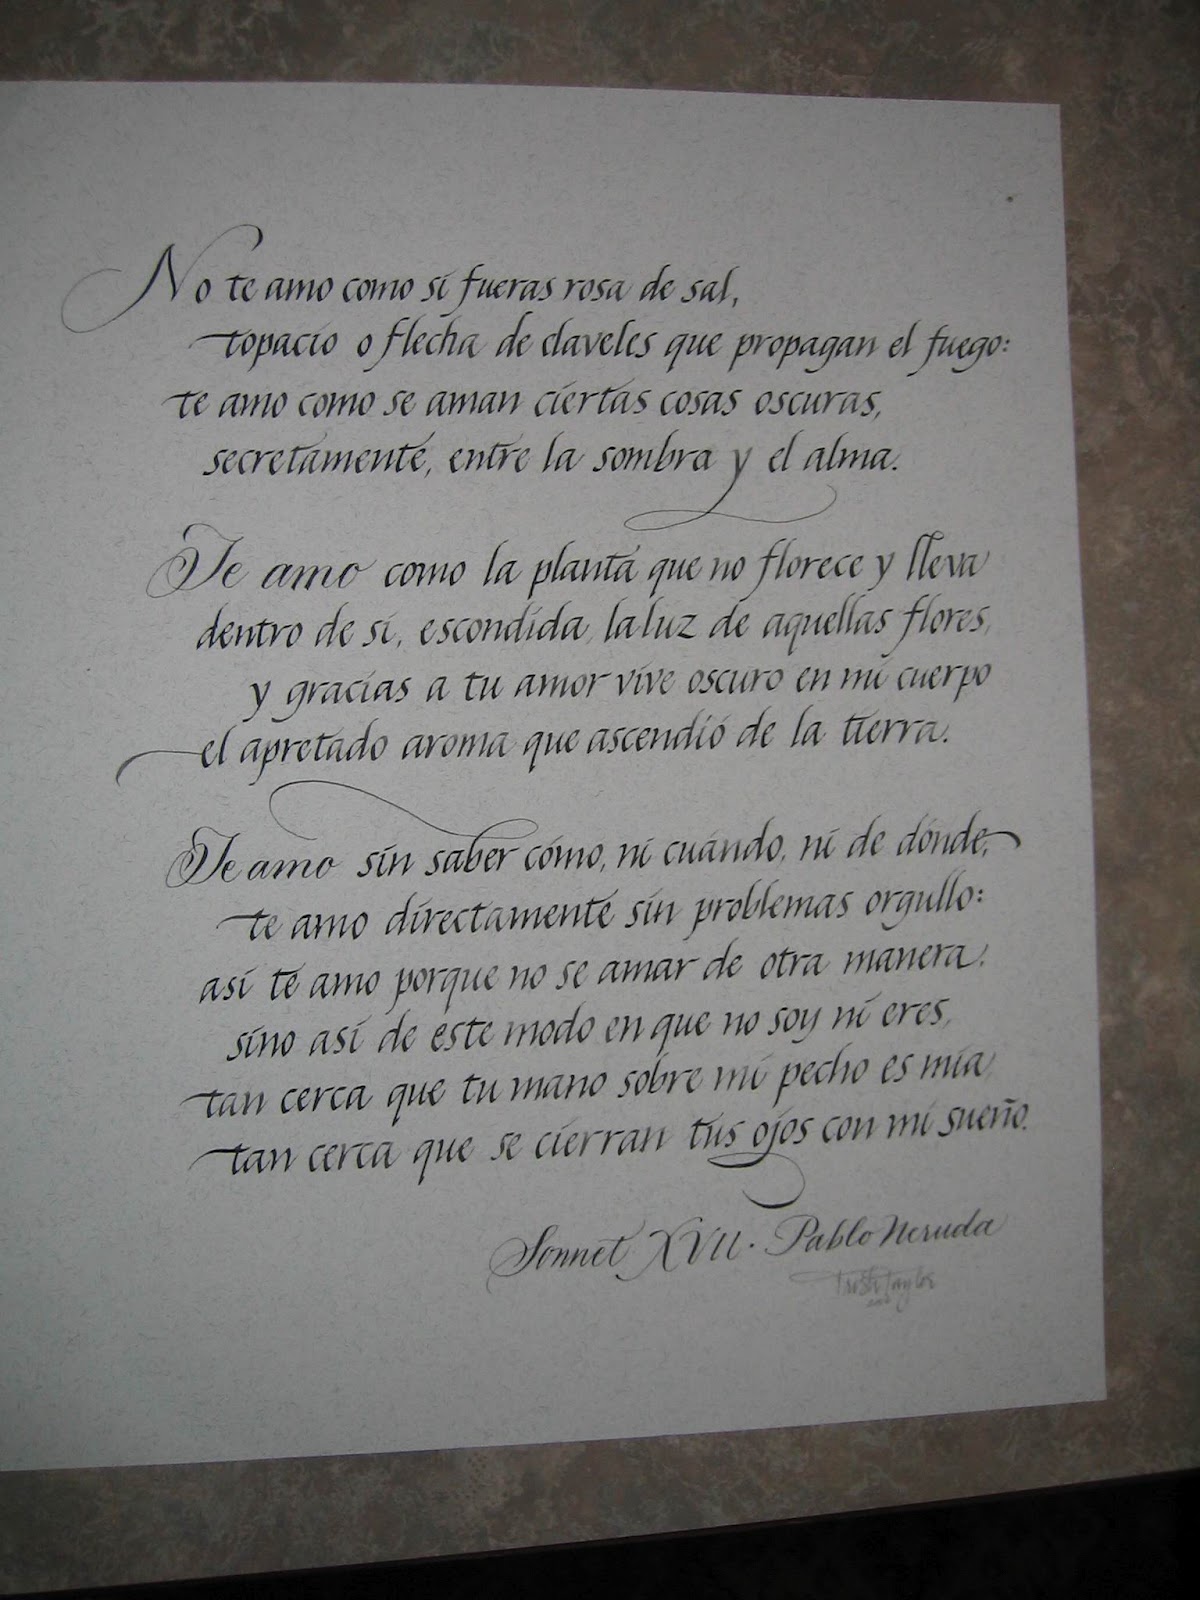 No te amo como si fueras rosa de sal,
topacio o flecha de claveles que propagan el fuego:
te amo como se aman ciertas cosas oscuras,
secretamente, entre la sombra y el alma.
Te amo como la planta que no florece y lleva
dentro de sí, escondida, la luz de aquellas flores,
y gracias a tu amor vive oscuro en mi cuerpo
el apretado aroma que ascendió de la tierra.
Te amo sin saber cómo, ni cuándo, ni de dónde,
te amo directamente sin problemas orgullo:
así te amo porque no se amar de otra manera.
sino así de este modo en que no soy ni eres,
tan cerca que tu mano sobre mi pecho es mía
tan cerca que se cierran tus ojos con mi sueño.
Sonnet XVII · Pablo Neruda
Trish Taylor